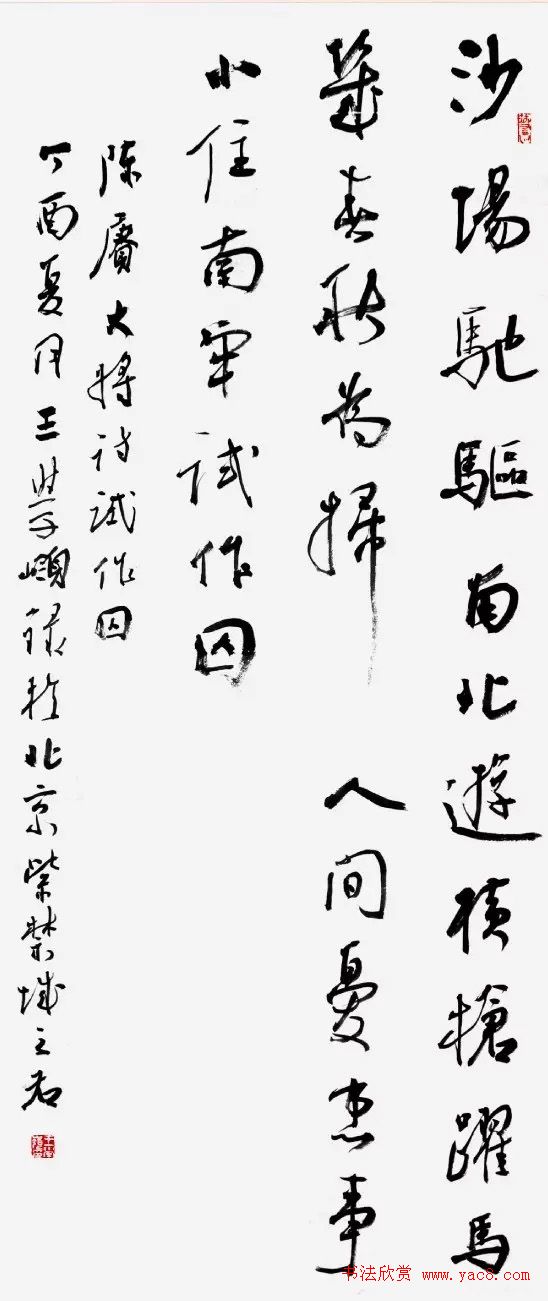 沙場馳驅南北遊橫槍躍馬
幾春秋為掃人間憂患事
小住南牢試作囚
陳賡大將詩試作囚
丁酉夏月王學嶺錄於北京紫禁城之右
书法欣赏 www.yac8.com